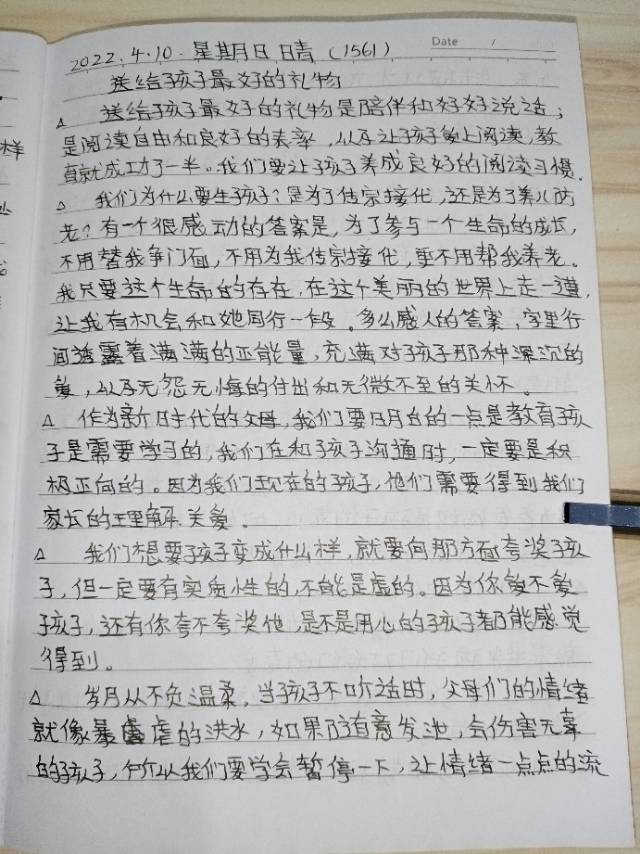 2022.4.10.星期日 晴（1561）
Date /
送给孩子最好的礼物
△ 送给孩子最好的礼物是陪伴和好好说话；
是阅读自由和良好的表率，以及让孩子爱上阅读，教
育就成功了一半。我们要让孩子养成良好的阅读习惯.
△ 我们为什么要生孩子？是为了传宗接代，还是为了养儿防
老？有一个很感动的答案是，为了参与一个生命的成长，
不用替我争门面，不用为我传宗接代，更不用帮我养老。
我只要这个生命的存在，在这个美丽的世界上走一遭，
让我有机会和她同行一段。多么感人的答案，字里行
间透露着满满的正能量，充满对孩子那种深沉的
爱，以及无怨无悔的付出和无微不至的关怀。
△ 作为新时代的父母，我们要明白的一点是教育孩
子是需要学习的，我们在和孩子沟通时，一定要是积
极正向的。因为我们现在的孩子，他们需要得到我们
家长的理解、关爱。
△ 我们想要孩子变成什么样，就要向那方面夸奖孩
子，但一定要有实质性的，不能是虚的。因为你爱不爱
孩子，还有你夸不夸奖他，是不是用心的孩子都能感觉
得到。
△ 岁月从不负温柔，当孩子不听话时，父母们的情绪
就像暴虐的洪水，如果随意发泄，会伤害无辜
的孩子，所以我们要学会暂停一下，让情绪一点点的流
样